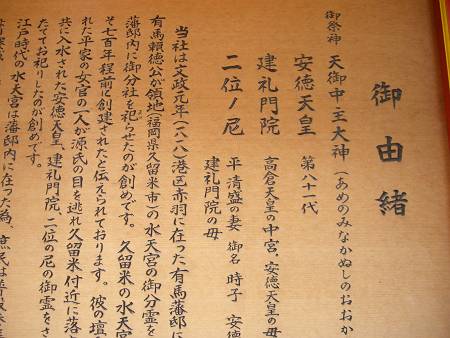 御由緒
御祭神 天御中主大神（あめのみなかぬしのおおか
安徳天皇 第八十一代
建礼門院 高倉天皇の中宮、安徳天皇の母
二位ノ尼 平清盛の妻 御名 時子 安徳
建礼門院の母
当社は文政元年（一八一八）港区赤羽に在った有馬藩邸に
有馬頼徳公が領地（福岡県久留米市）の水天宮の御分霊を
藩邸内に御分社を祀らせたのが創めです。 久留米の水天宮
そ七百年程前に創建されたと伝えられております。彼の壇
れた平家の女官の一人が源氏の目を逃れ久留米付近に落
共に入水された安徳天皇、建礼門院、二位の尼の御霊をさ
たてお祀りしたのが創めです。
江戸時代の水天宮は藩邸内に在った為、庶民は